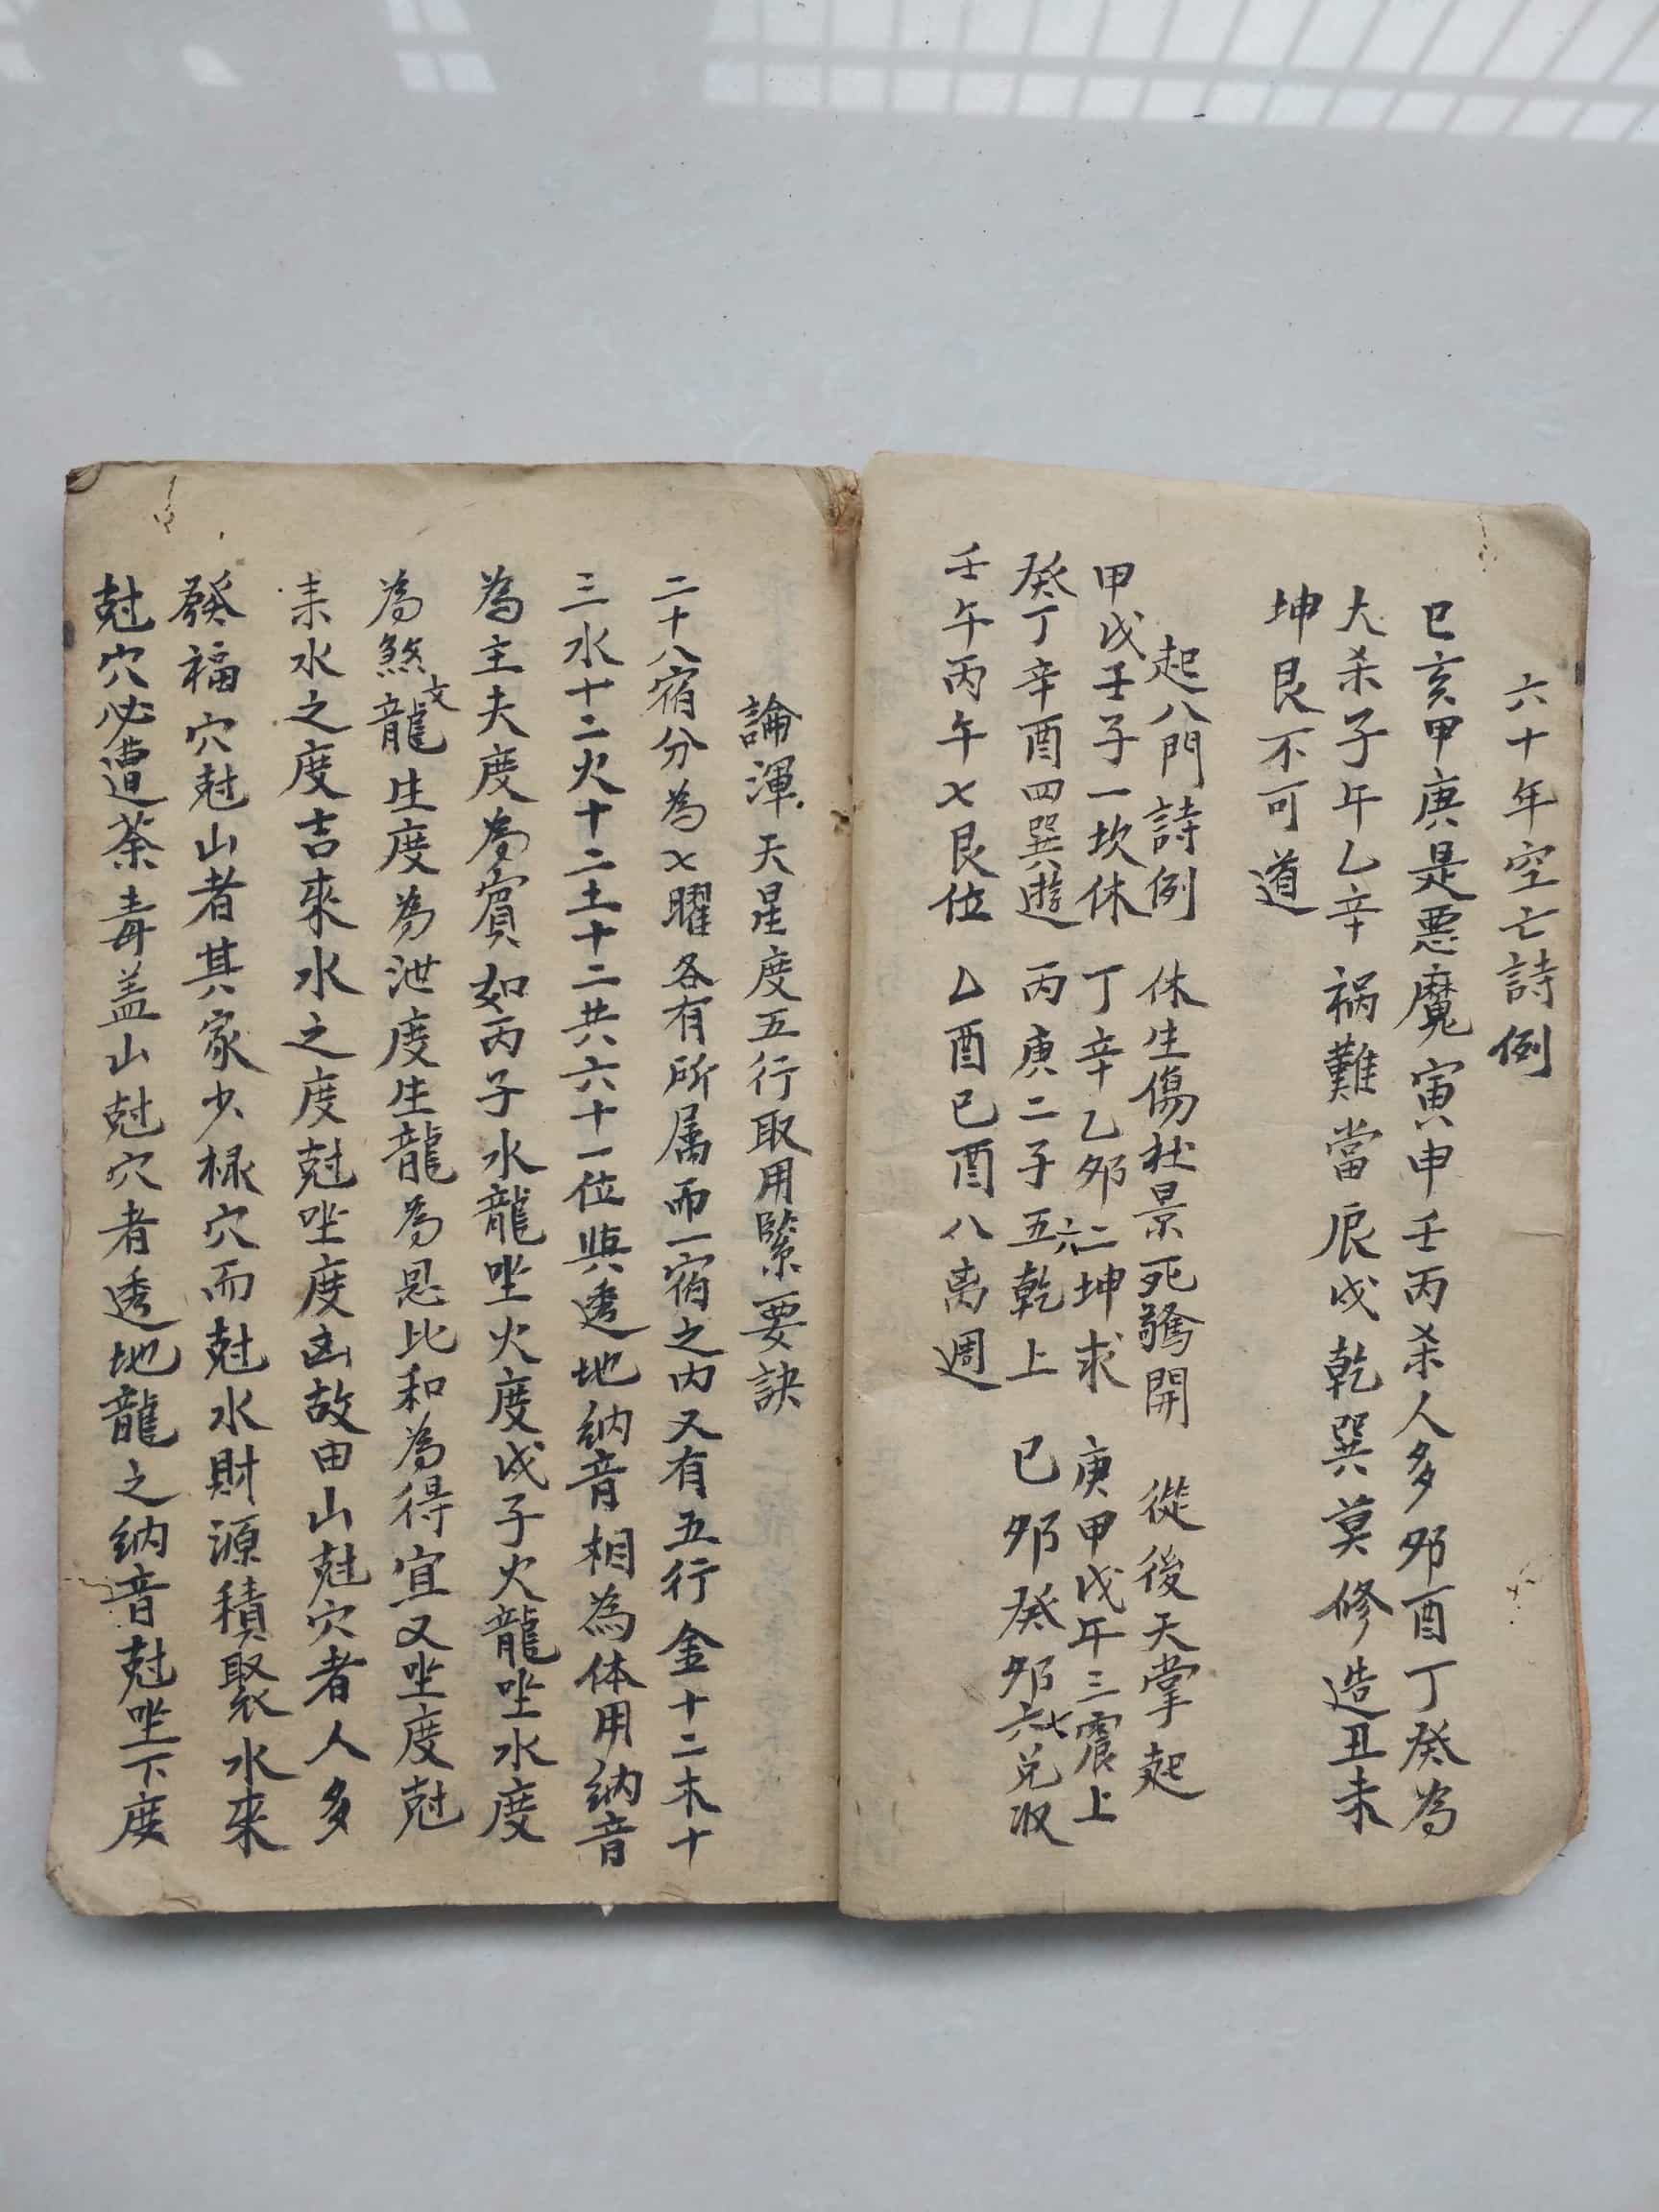 六十年空亡詩例
巳亥甲庚是悪魔寅申壬丙杀人多夘酉丁癸為
大杀子午乙辛禍難當辰戌乾巽莫修造丑未
坤艮不可道
起八門詩例 休生傷杜景死驚開 從後天掌起
甲戊壬子一坎休 丁辛乙夘二坤求 庚甲戊午三震上
癸丁辛酉四巽遊 丙庚二子五六乾上 已夘癸夘六七兑収
壬午丙午〤艮位 乙酉已酉八离週
論渾天星度五行取用緊要訣
二十八宿分為〤曜各有所属而一宿之内又有五行金十二木十
三水十二火十二土十二共六十一位與透地納音相為体用納音
為主夫度為賓如丙子水龍坐火度戊子火龍坐水度
為煞文龍生度為泄度生龍為恩比和為得宜又坐度尅
来水之度吉來水之度尅坐度凶故由山尅穴者人多
發福穴尅山者其家少禄穴而尅水財源積聚水來
尅穴必遭荼毒盖山尅穴者透地龍之納音尅坐下度